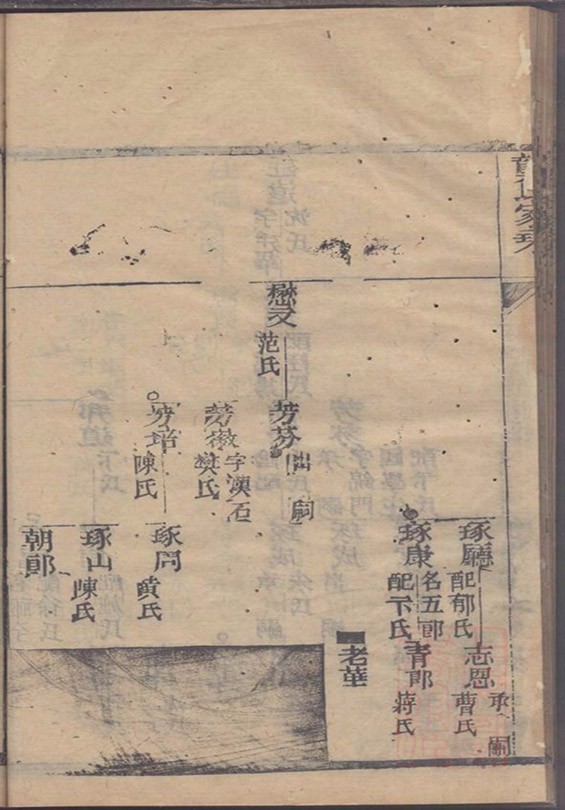 家乘
琢廳
配郁氏
志恩
承嗣
曹氏
琢康
名五郎
配卞氏
青郎
蔣氏
老華
懋文
范氏
芳芬
出嗣
芳徵
字漢石
樊氏
芳培
陳氏
琢岡
黄氏
琢山
陳氏
朝郎